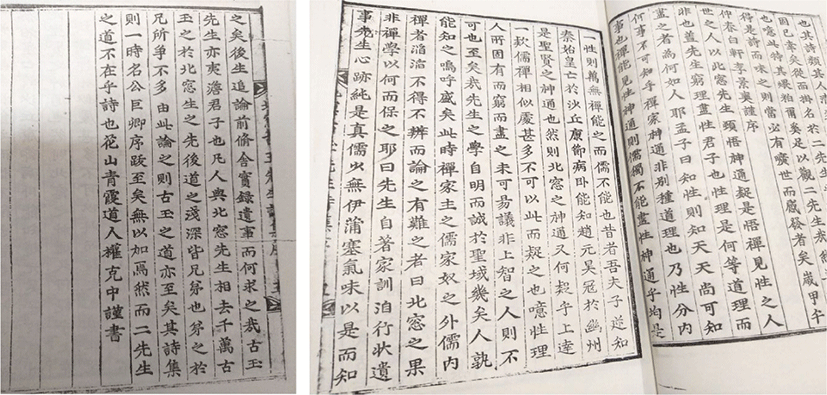 也其詩類其人
因已彙從而掛名於二先生
也噫此特其糟粕爾矣是以觀二先生哉
得是詩而味之則當必有曠世而感發者矣歲甲午
仲春白軒李景奭謹序
世之人以北窓先生頴悟神通疑是悟禪見性之人
非也盖先生窮理盡性君子也性理是何等道理而
盡之者為何如人耶孟子曰知性則知天天尚可知
何事不可知乎禪家神通非別種道理也乃性分内
事也禪能見性神通則儒獨不能盡性神通乎均是
一性則萬無禪能之而儒不能也昔者吾夫子逆知
秦始皇亡於沙丘康節病卧能知趙元昊冦於幽州
是聖賢之神通也然則北窓之神通又何疑乎上達
一欵儒禪相似處甚多不可以此而疑之也噫性理
人所固有而窮而盡之未可易議非上智之人則不
可也至矣哉先生之學自明而誠於聖域幾矣人孰
能知之嗚呼盛矣此時禪家主之儒家奴之外儒内
禪者滔滔不得不辨而論之有難之者曰北窓之果
非禪學以何而保之耶曰先生自著家訓洎行狀遺
事先生心跡純是真儒出無伊蒲塞氣味以是而知
之矣後生追論前脩舍實録遺事而何求之哉古玉
先生亦夷澹君子也凡人與北窓先生相去千萬古
玉之於北窓生之先後道之淺深皆兄弟也弟之於
兄所爭不多由此論之則古玉之道亦至矣其詩集
則一時名公巨卿序跋至矣無以加焉然而二先生
之道不在乎詩也花山青霞道人權克中謹書